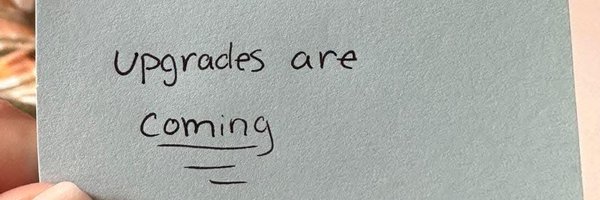 upgrades are
coming